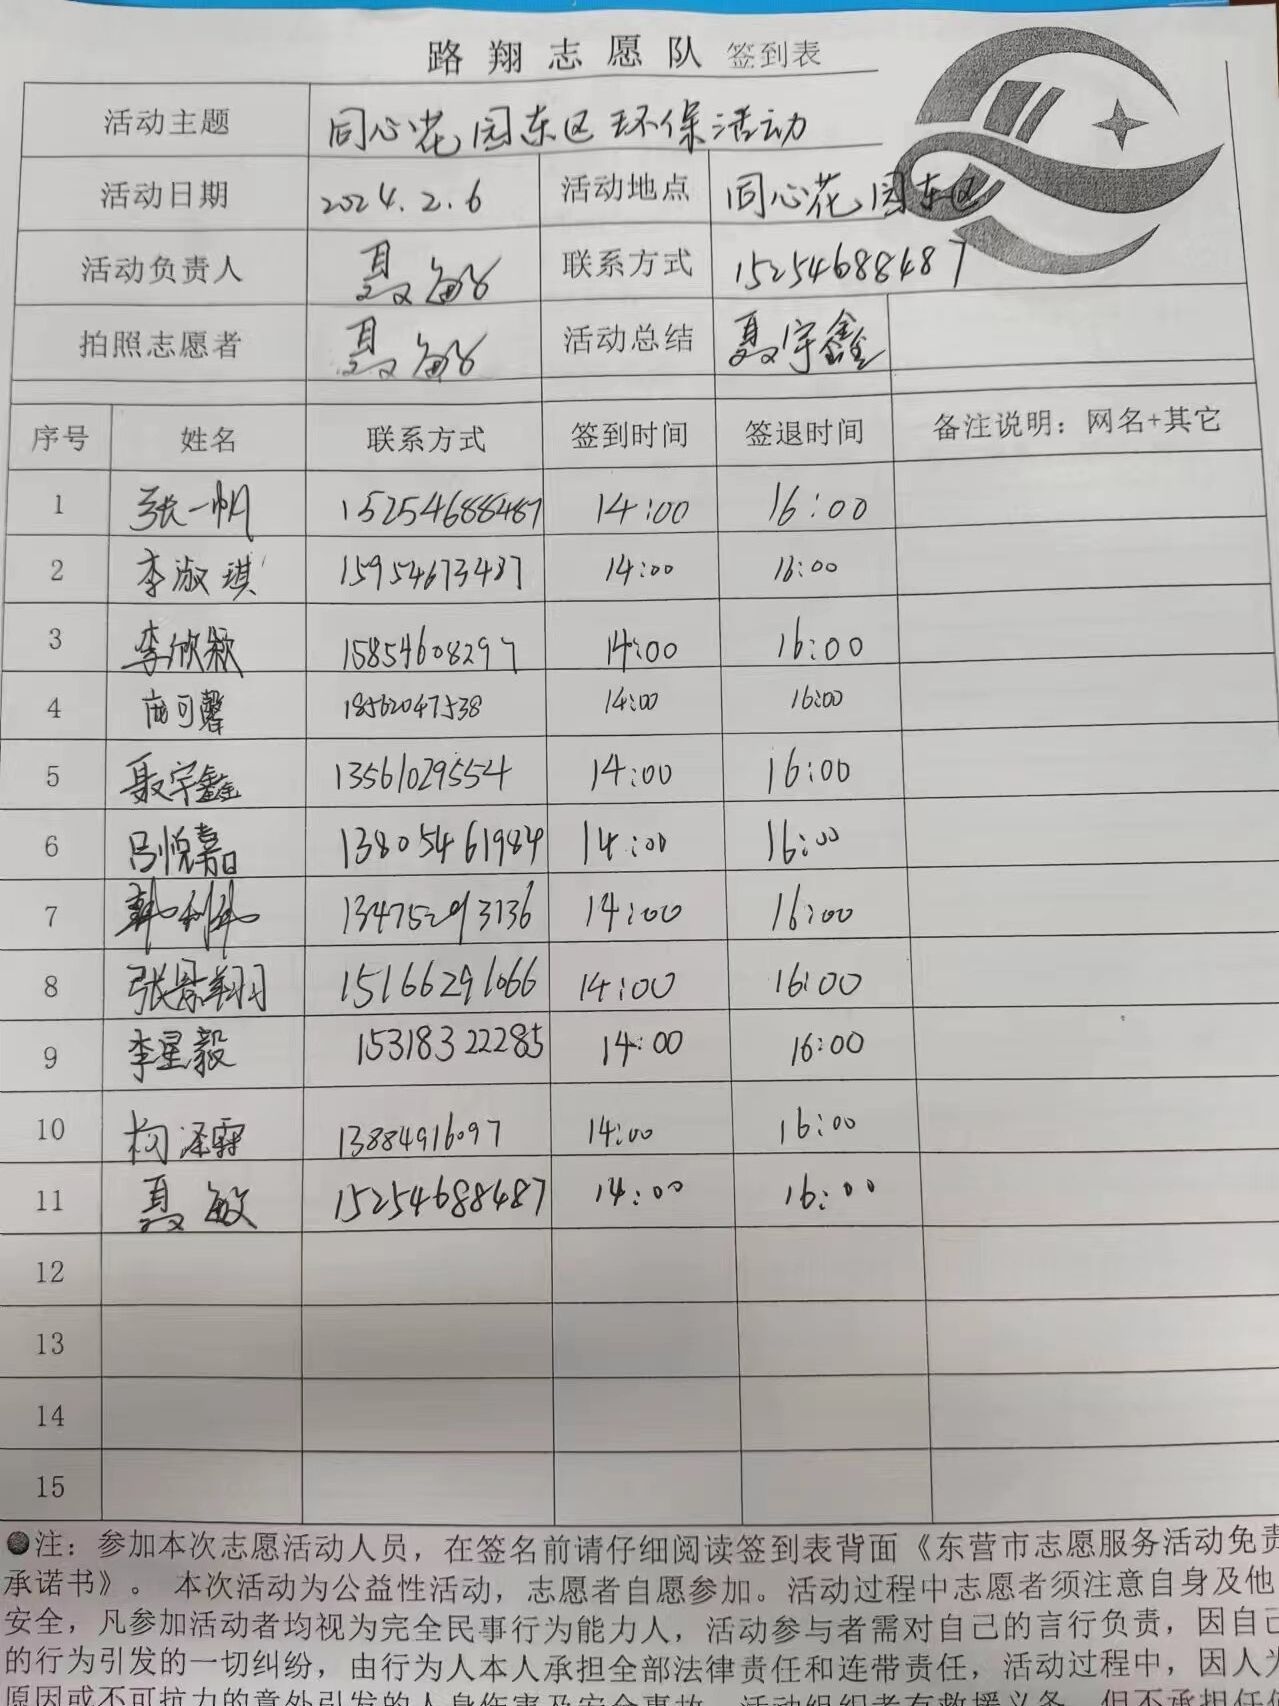 路翔志愿队 签到表
活动主题 同心花园东区环保活动
活动日期 2024.2.6 活动地点 同心花园东区
活动负责人 聂敏 联系方式 15254688487
拍照志愿者 聂敏 活动总结 聂宇鑫
序号 姓名 联系方式 签到时间 签退时间 备注说明：网名+其它
1 张一帆 15254688487 14:00 16:00
2 李淑琪 15954673487 14:00 16:00
3 李欣颖 15854608297 14:00 16:00
4 可馨 18562047538 14:00 16:00
5 聂宇鑫 13561029554 14:00 16:00
6 吕悦嘉 13805461984 14:00 16:00
7 韩利伟 13475293136 14:00 16:00
8 张景翔 15166291066 14:00 16:00
9 李星毅 15318322285 14:00 16:00
10 泽霖 13884916097 14:00 16:00
11 聂敏 15254688487 14:00 16:00
12
13
14
15
●注：参加本次志愿活动人员，在签名前请仔细阅读签到表背面《东营市志愿服务活动免责
承诺书》。 本次活动为公益性活动，志愿者自愿参加。活动过程中志愿者须注意自身及他
安全，凡参加活动者均视为完全民事行为能力人，活动参与者需对自己的言行负责，因自己
的行为引发的一切纠纷，由行为人本人承担全部法律责任和连带责任，活动过程中，因人为
原因或不可抗力的意外引发的人身伤害及安全事故，活动组织者有救援义务，但不承担任何